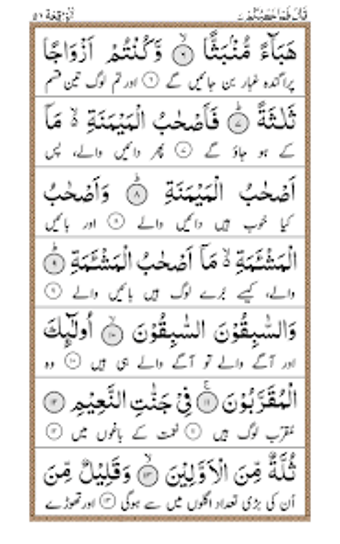 قال فما خطبكم ٢٧
الواقعة ٥٦
هَبَآءً مُّنْۢبَثًّا ۙ﴿۶﴾ وَّكُنْتُمْ اَزْوَاجًا
پراگندہ غبار بن جائیں گے ﴿۶﴾ اور تم لوگ تین قسم
ثَلٰثَةً ؕ﴿۷﴾ فَاَصْحٰبُ الْمَيْمَنَةِ ۙ مَاۤ
کے ہو جاؤ گے ﴿۷﴾ پھر دائیں والے، پس
اَصْحٰبُ الْمَيْمَنَةِ ؕ﴿۸﴾ وَاَصْحٰبُ
کیا خوب ہیں دائیں والے ﴿۸﴾ اور بائیں
الْمَشْـَٔمَةِ ۙ مَاۤ اَصْحٰبُ الْمَشْـَٔمَةِ ؕ﴿۹﴾
والے، کیسے بُرے لوگ ہیں بائیں والے ﴿۹﴾
وَالسّٰبِقُوْنَ السّٰبِقُوْنَ ۙ﴿۱۰﴾ اُولٰٓئِكَ
اور آگے والے تو آگے والے ہی ہیں ﴿۱۰﴾ وہ
الْمُقَرَّبُوْنَ ۚ﴿۱۱﴾ فِيْ جَنّٰتِ النَّعِيْمِ ﴿۱۲﴾
مقرّب لوگ ہیں ﴿۱۱﴾ نعمت کے باغوں میں ﴿۱۲﴾
ثُلَّةٌ مِّنَ الْاَوَّلِيْنَ ۙ﴿۱۳﴾ وَقَلِيْلٌ مِّنَ
اُن کی بڑی تعداد اگلوں میں سے ہوگی ﴿۱۳﴾ اور تھوڑے